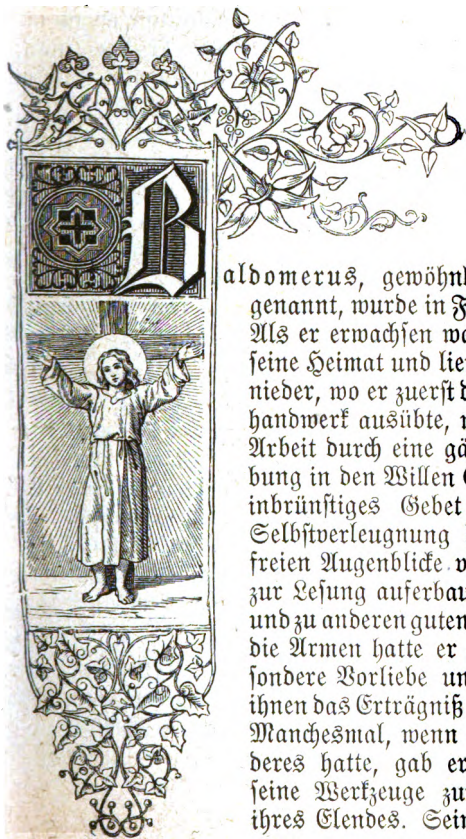 Baldomerus, gewöhnl
genannt, wurde in F
Als er erwachsen wa
seine Heimat und lie
nieder, wo er zuerst d
handwerk ausübte, n
Arbeit durch eine gä
bung in den Willen G
inbrünstiges Gebet
Selbstverleugnung
freien Augenblicke v
zur Lesung auferbau
und zu anderen guten
die Armen hatte er
sondere Vorliebe un
ihnen das Erträgniß
Manchesmal, wenn
deres hatte, gab er
seine Werkzeuge zu
ihres Elendes. Sein